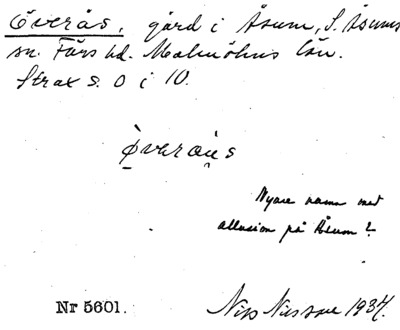 Överås, gård i Åsum, S. Åsums
sn. Färs hd. Malmöhus län.
Strax s. O i 10.
Øveraųs
Nyare namn med
allusion på Åsum?
Nr 5601. Nils Nilsson 1937.